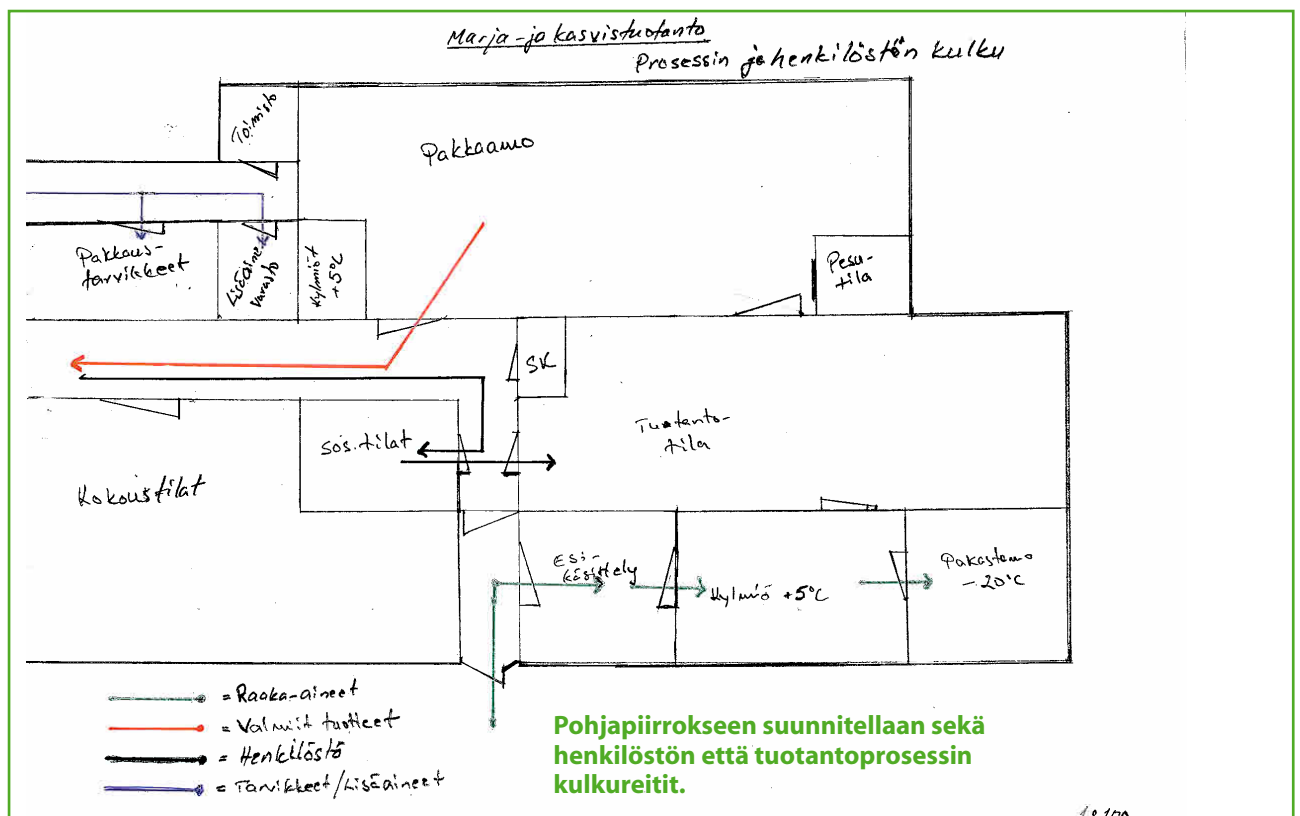 Marja-ja kasvistuotanto
Prosessin ja henkilöstön kulku
Toimisto
Pakkaamo
Pakkaus-
tarvikkeet
Lisäaine
varasto
Kylmiöt
+5°C
Pesu-
tila
SK
Sos.tilat
Tuotanto-
tila
Kokoustilat
Esi-
käsittely
Kylmiö +5°C
Pakastamo
-20°C
= Raaka-aineet
= Valmiit tuotteet
= Henkilöstö
= Tarvikkeet/Lisäaineet
Pohjapiirrokseen suunnitellaan sekä
henkilöstön että tuotantoprosessin
kulkureitit.